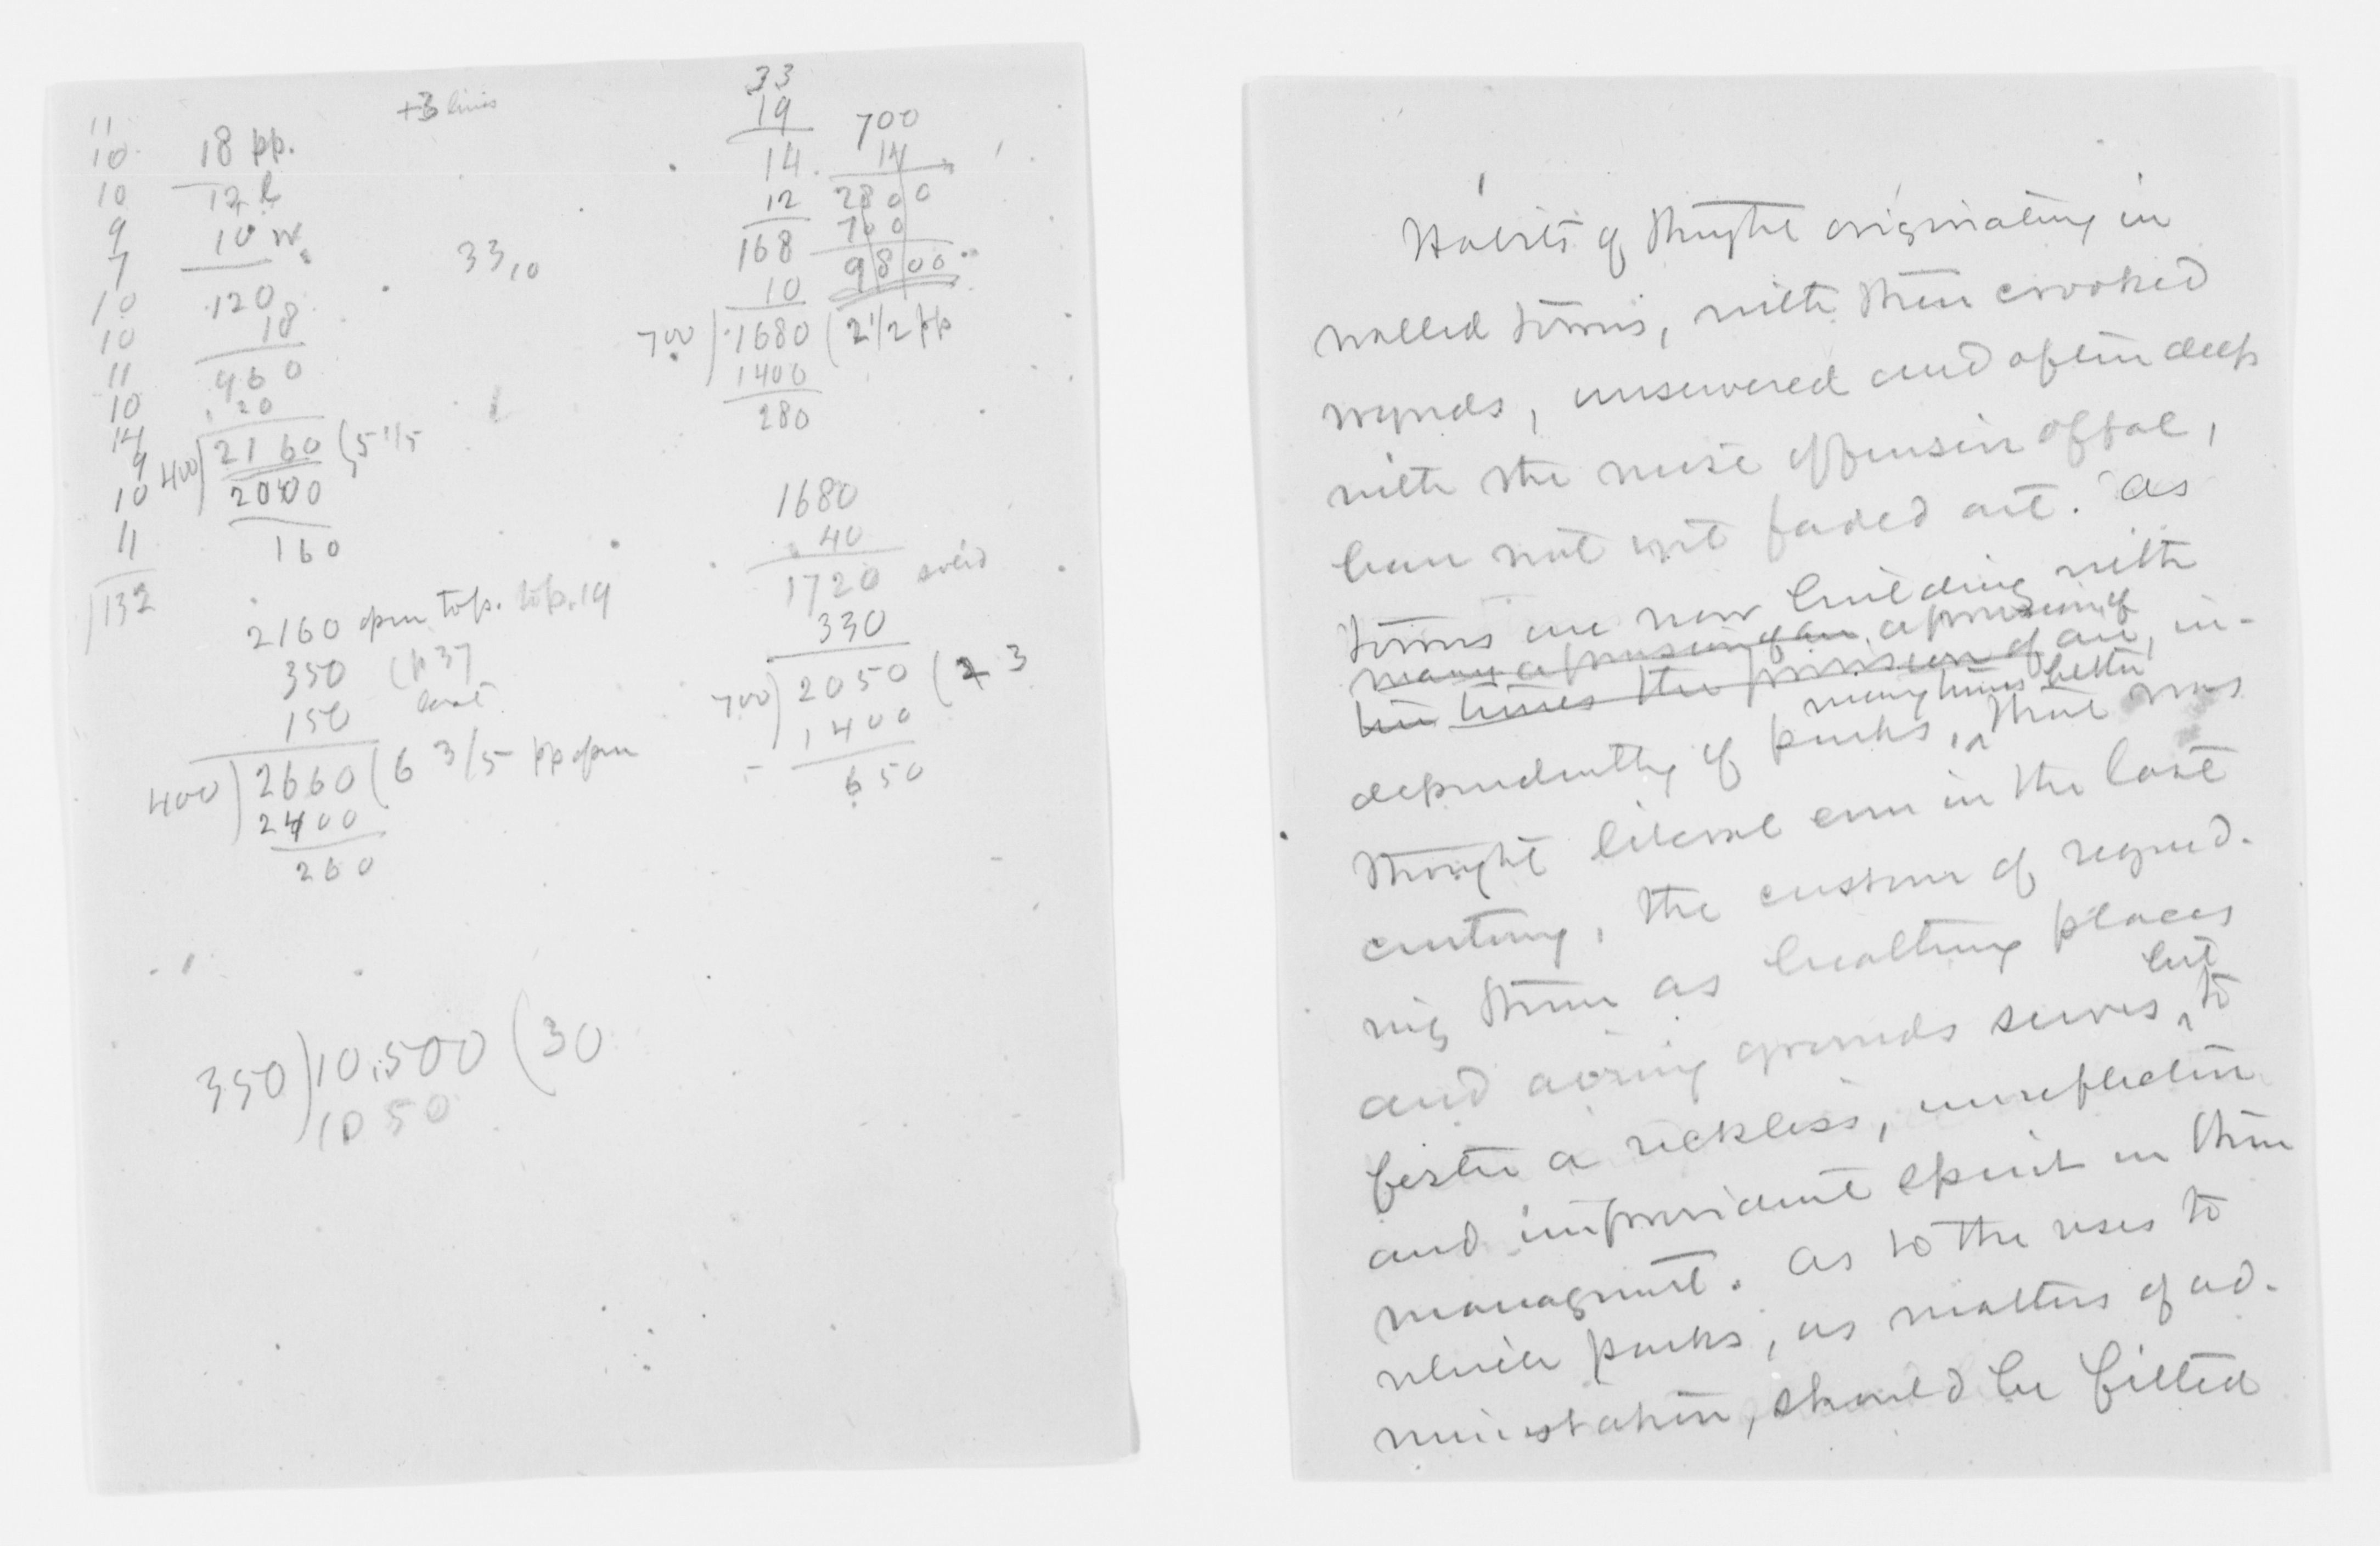 11
10
10
9
7
10
10
11
10
14
9
10
11
132
+3 lines
18 pp.
12 l
10 w.
120
18
960
120
400)2160(5 1/5
2000
160
33,10
2160 open to p. to p. 19
350 (p 37
150 last
400)2660(6 3/5 pp open
2400
260
350)10,500(30
1050
33
19
14
12
168
10
700)1680(2 1/2 pp
1400
280
700
14
2800
700
9800
1680
40
1720 solid
330
700)2050(2 3
1400
650
Habits of thought originating in
walled towns, with their crooked
wynds, unsewered and often deep
with the most offensive offal,
have not yet faded out. As
towns are now building with
many a provision of air, a provision of
ten times the provision of air, in-
many times better
dependently of parks, than was
thought liberal even in the last
century, the custom of regard-
ing them as breathing places
but
and airing grounds serves to
foster a reckless, unreflective
and improvident spirit in their
managment. As to the uses to
which parks, as matters of ad-
ministration, should be fitted